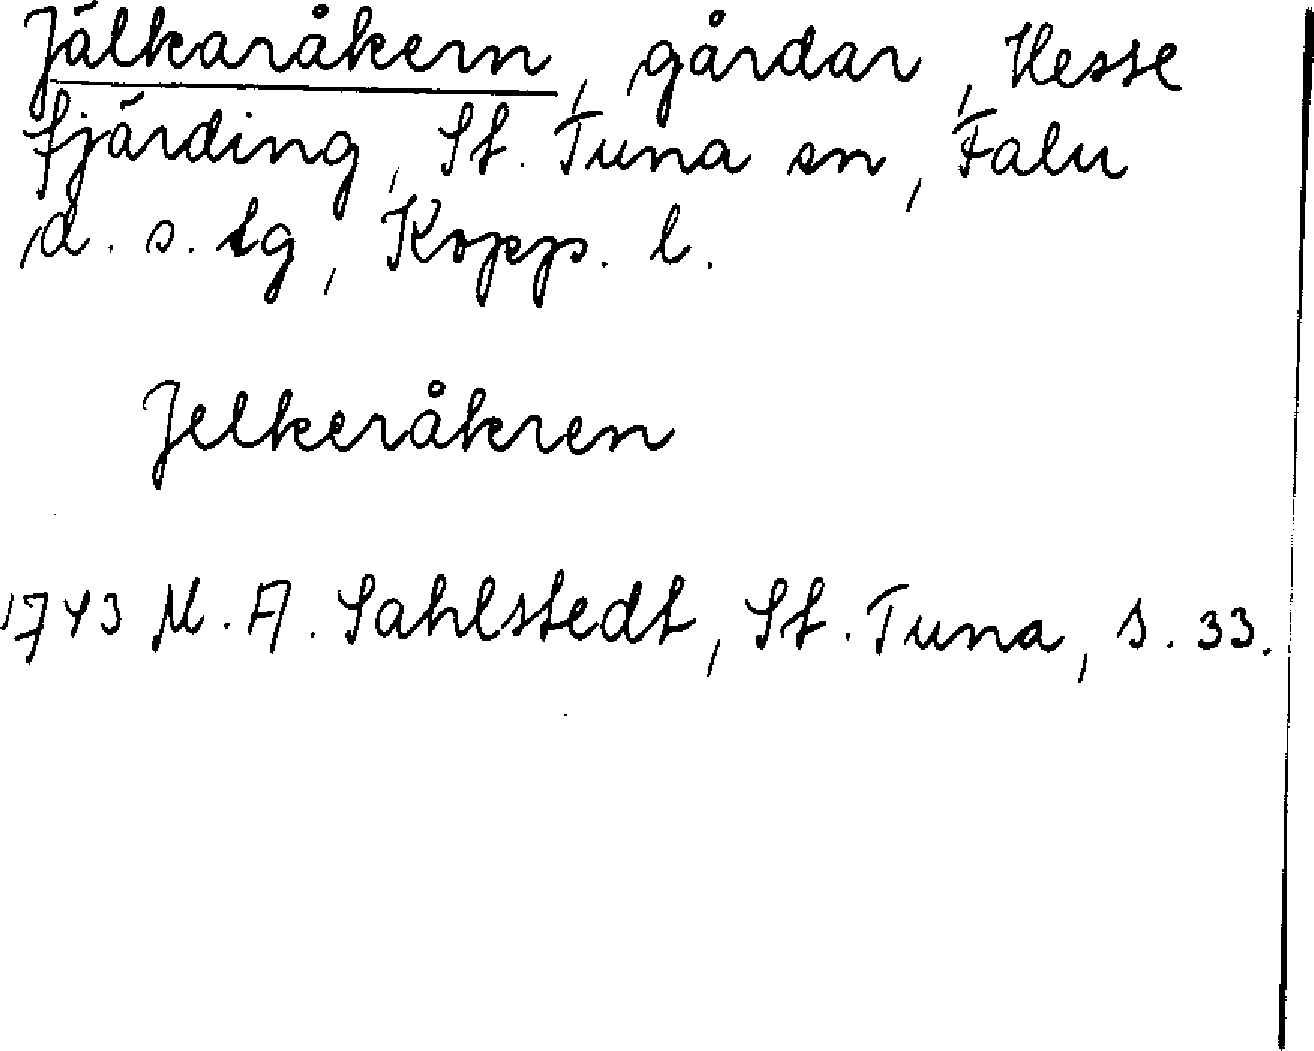 Jälkaråkern, gårdar, Hesse
fjärding, St. Tuna sn, Falu
d. s. tg, Kopp. l.
Jelkeråkren
1743 M. A. Sahlstedt, St. Tuna, s. 33.